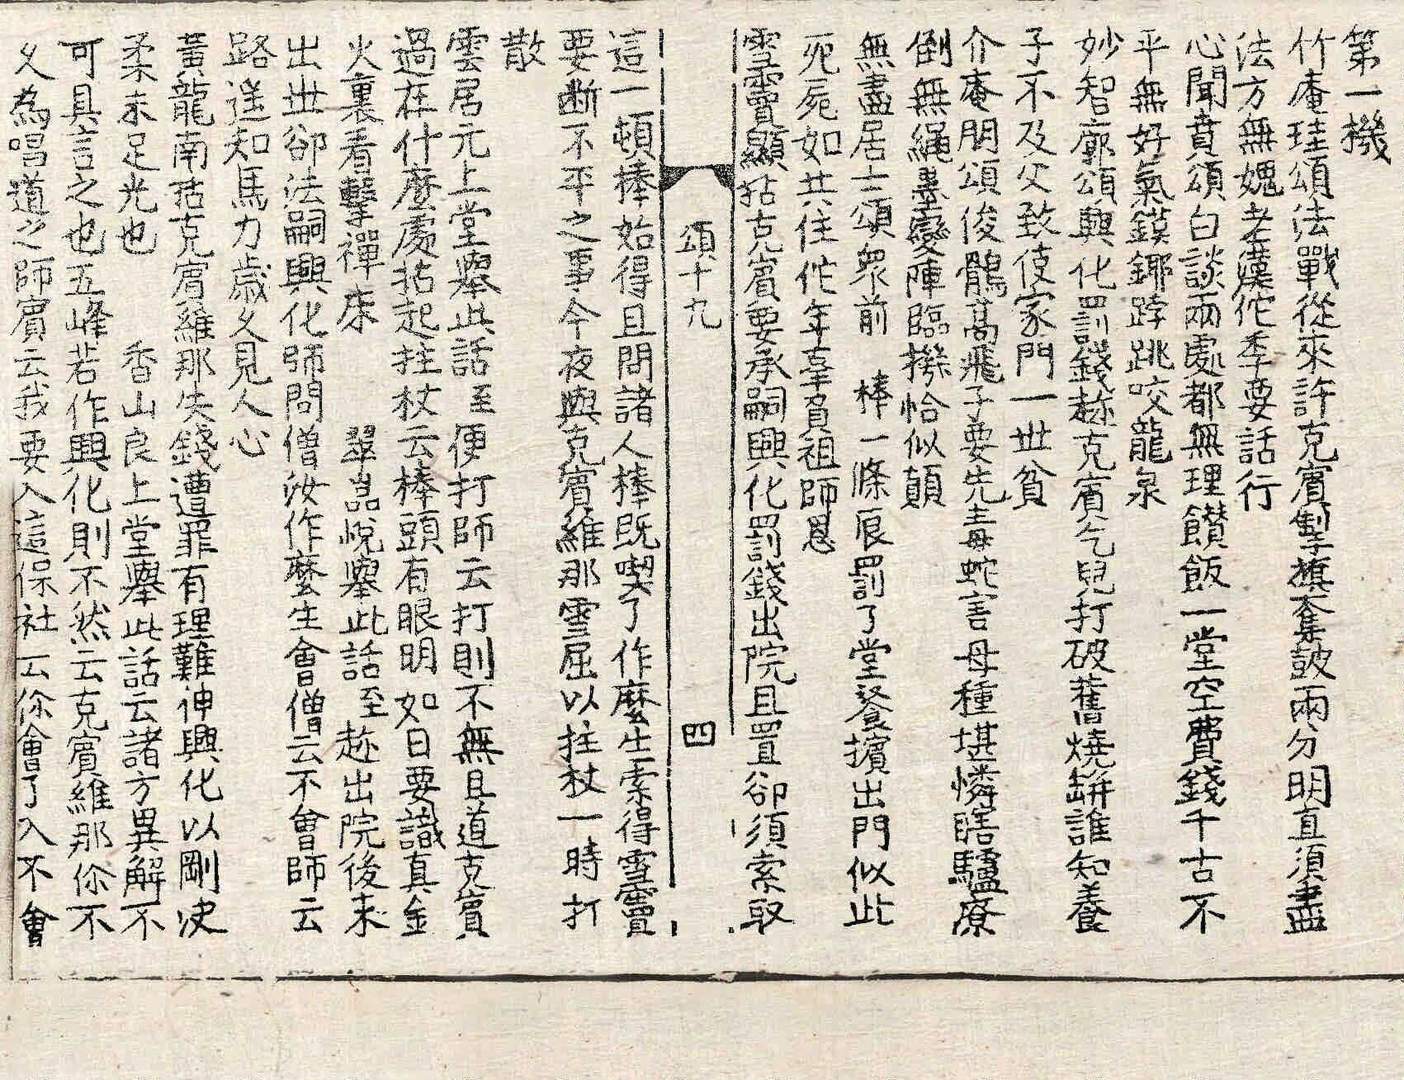 第一機
竹庵珪頌法戰從來許克賓掣旗奪皷兩分明直須盡
法方無媿老漢佗季要話行
心聞賁頌白談兩處都無理饡飯一堂空費錢千古不
平無好氣鏌鎁踍跳咬龍泉
妙智廓頌興化罰錢趂克賓乞兒打破舊燒缾誰知養
子不及父致使家門一世貧
介庵朋頌俊鶻髙飛子要先毒蛇害母種堪憐瞎驢療
倒無繩墨變陣臨機恰似顛
無盡居士頌衆前 棒一條痕罰了堂飡擯出門似此
死屍如共住佗年辜負祖師恩
雪竇顯拈克賓要承嗣興化罰錢出院且置卻須索取
頌十九 四
這一頓棒始得且問諸人棒既喫了作麼生索得雪竇
要斷不平之事今夜與克賓維那雪屈以拄杖一時打
散
雲居元上堂舉此話至便打師云打則不無且道克賓
過在什麼處拈起拄杖云棒頭有眼明如日要識真金
火裏看擊禪床 翠嵓悅舉此話至趂出院後来
出世卻法嗣興化師問僧汝作麼生會僧云不會師云
路遥知馬力歳久見人心
黃龍南拈克賓維那失錢遭罪有理難伸興化以剛决
柔未足光也 香山良上堂舉此話云諸方異解不
可具言之也五峰若作興化則不然云克賓維那你不
乆為唱道之師賓云我要入這保社云你會了入不會